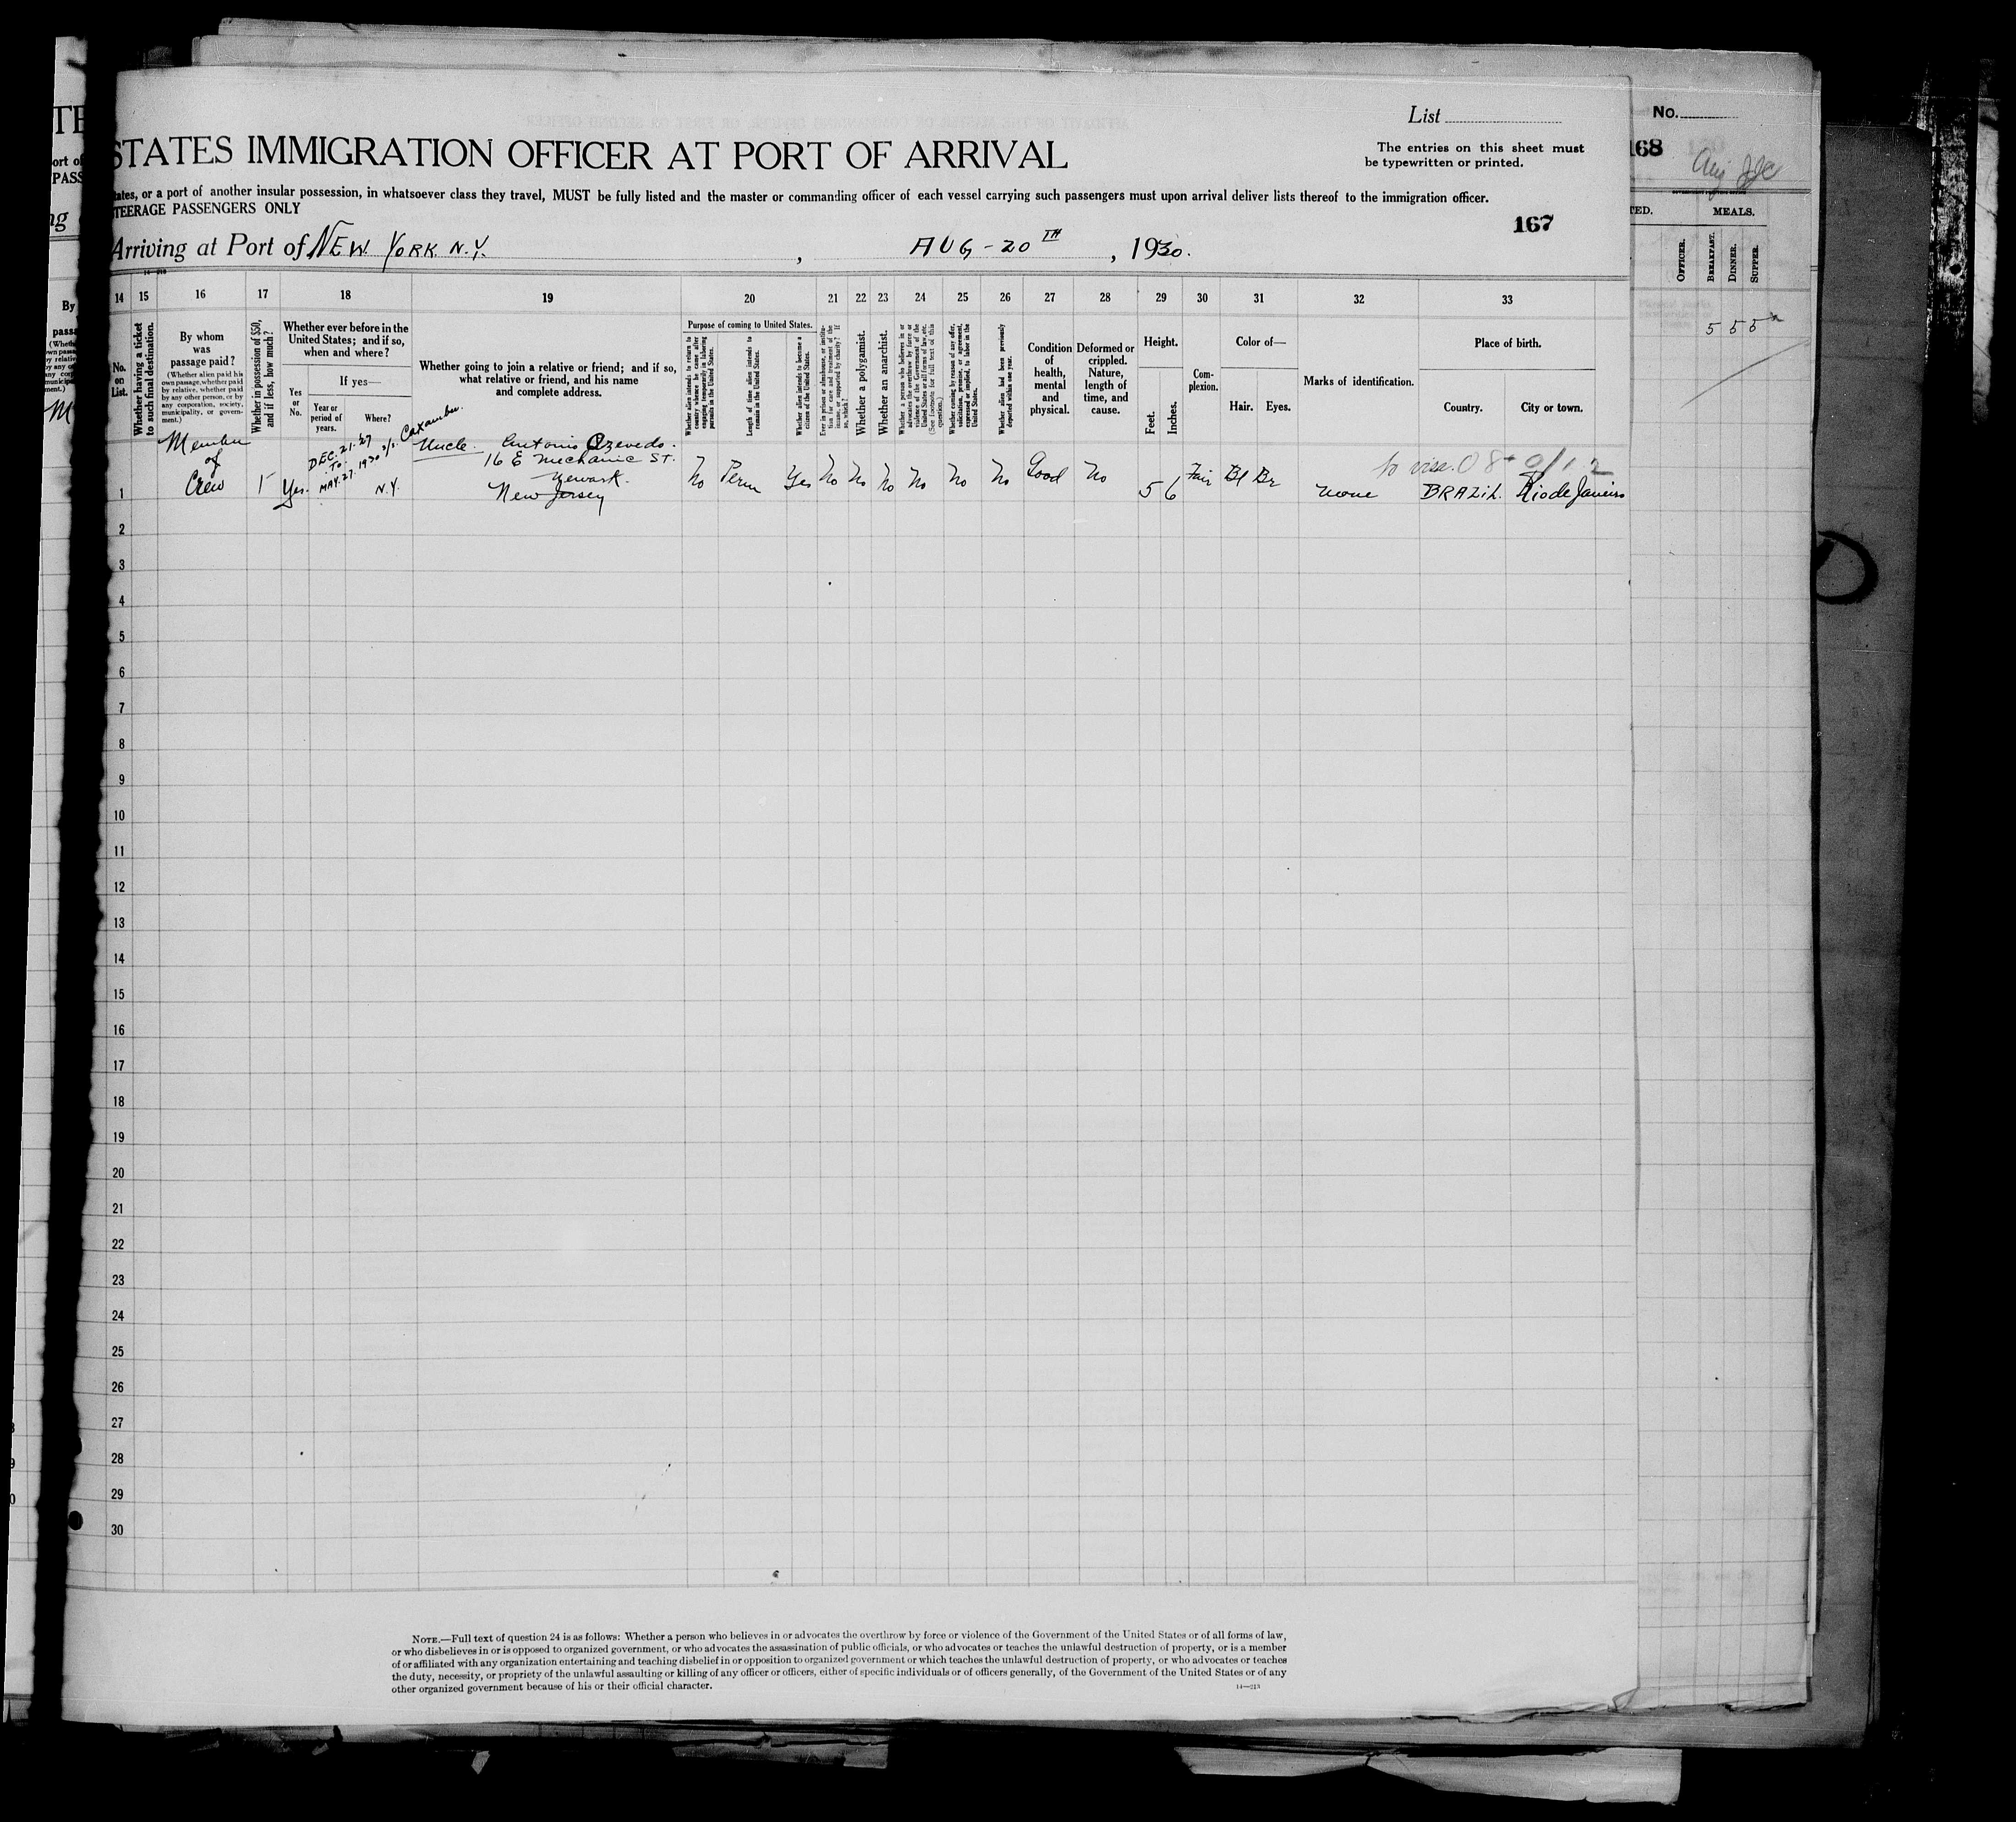 List
No.
STATES IMMIGRATION OFFICER AT PORT OF ARRIVAL
The entries on this sheet must
be typewritten or printed.
168
tates, or a port of another insular possession, in whatsoever class they travel, MUST be fully listed and the master or commanding officer of each vessel carrying such passengers must upon arrival deliver lists thereof to the immigration officer.
TEERAGE PASSENGERS ONLY
167
Arriving at Port of NEW YORK N.Y. , AUG-20TH , 1930.
TED.
MEALS.
OFFICER.
BREAKFAST.
DINNER.
SUPPER.
5 5 5
14 15 16 17 18 19 20 21 22 23 24 25 26 27 28 29 30 31 32 33
No. on List.
Whether having a ticket to such final destination.
By whom was passage paid?
(Whether alien paid his own passage, whether paid by relative, whether paid by any other person, or by any corporation, society, municipality, or government.)
Whether in possession of $50, and if less, how much?
Whether ever before in the United States; and if so, when and where?
Yes or No.
If yes—
Year or period of years.
Where?
Whether going to join a relative or friend; and if so, what relative or friend, and his name and complete address.
Purpose of coming to United States.
Whether alien intends to return to country whence he came after engaging temporarily in laboring pursuits in the United States.
Length of time alien intends to remain in the United States.
Whether alien intends to become a citizen of the United States.
Ever in prison or almshouse, or institution for care and treatment of the insane, or supported by charity? If so, which?
Whether a polygamist.
Whether an anarchist.
Whether a person who believes in or advocates the overthrow by force or violence of the Government of the United States or all forms of law, etc. (See footnote for full text of this question.)
Whether coming by reason of any offer, solicitation, promise, or agreement, expressed or implied, to labor in the United States.
Whether alien had been previously deported within one year.
Condition of health, mental and physical.
Deformed or crippled. Nature, length of time, and cause.
Height.
Feet.
Inches.
Complexion.
Color of—
Hair.
Eyes.
Marks of identification.
Place of birth.
Country.
City or town.
1 Member of Crew Yes. DEC. 21. 27 TO MAY. 27. 1930 N.Y. Uncle. Antonio Azevedo. 16 E Mechanic ST. Newark. New Jersey No Perm Yes No No No No No No Good No 5 6 Fair Bl Br none BRAZIL. Rio de Janeiro
2
3
4
5
6
7
8
9
10
11
12
13
14
15
16
17
18
19
20
21
22
23
24
25
26
27
28
29
30
NOTE.—Full text of question 24 is as follows: Whether a person who believes in or advocates the overthrow by force or violence of the Government of the United States or of all forms of law,
or who disbelieves in or is opposed to organized government, or who advocates the assassination of public officials, or who advocates or teaches the unlawful destruction of property, or is a member
of or affiliated with any organization entertaining and teaching disbelief in or opposition to organized government or which teaches the unlawful destruction of property, or who advocates or teaches
the duty, necessity, or propriety of the unlawful assaulting or killing of any officer or officers, either of specific individuals or of officers generally, of the Government of the United States or of any
other organized government because of his or their official character.
14—213